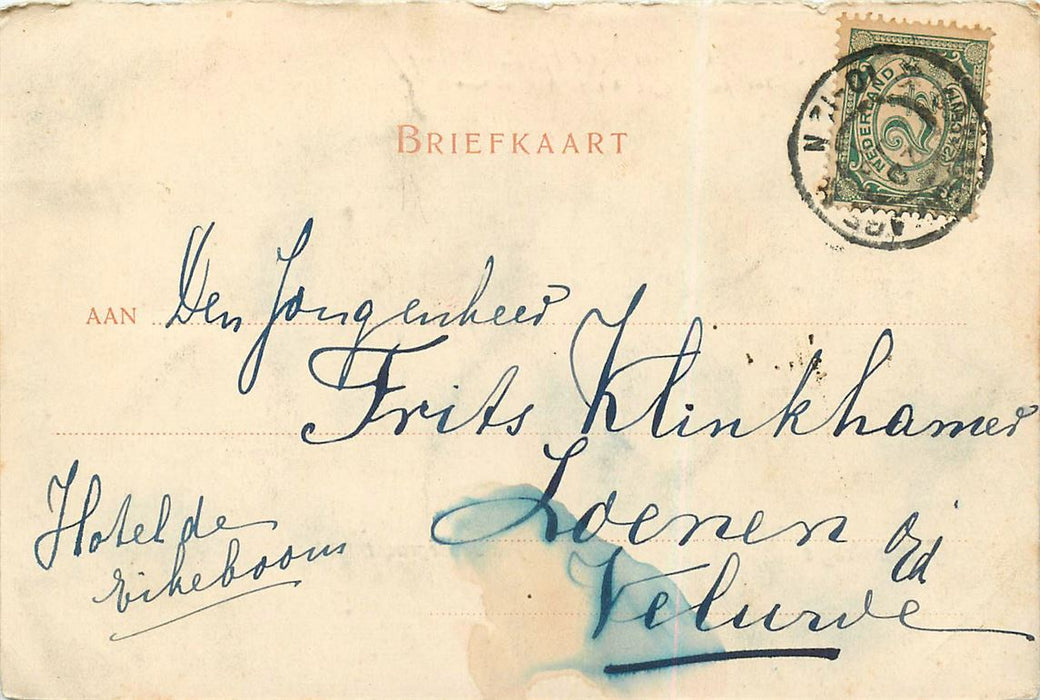 BRIEFKAART
NEDERLAND
2½
AAN Den Jongenheer
Frits Klinkhamer
Loenen o/d
Veluwe
Hotel de
Eikeboom